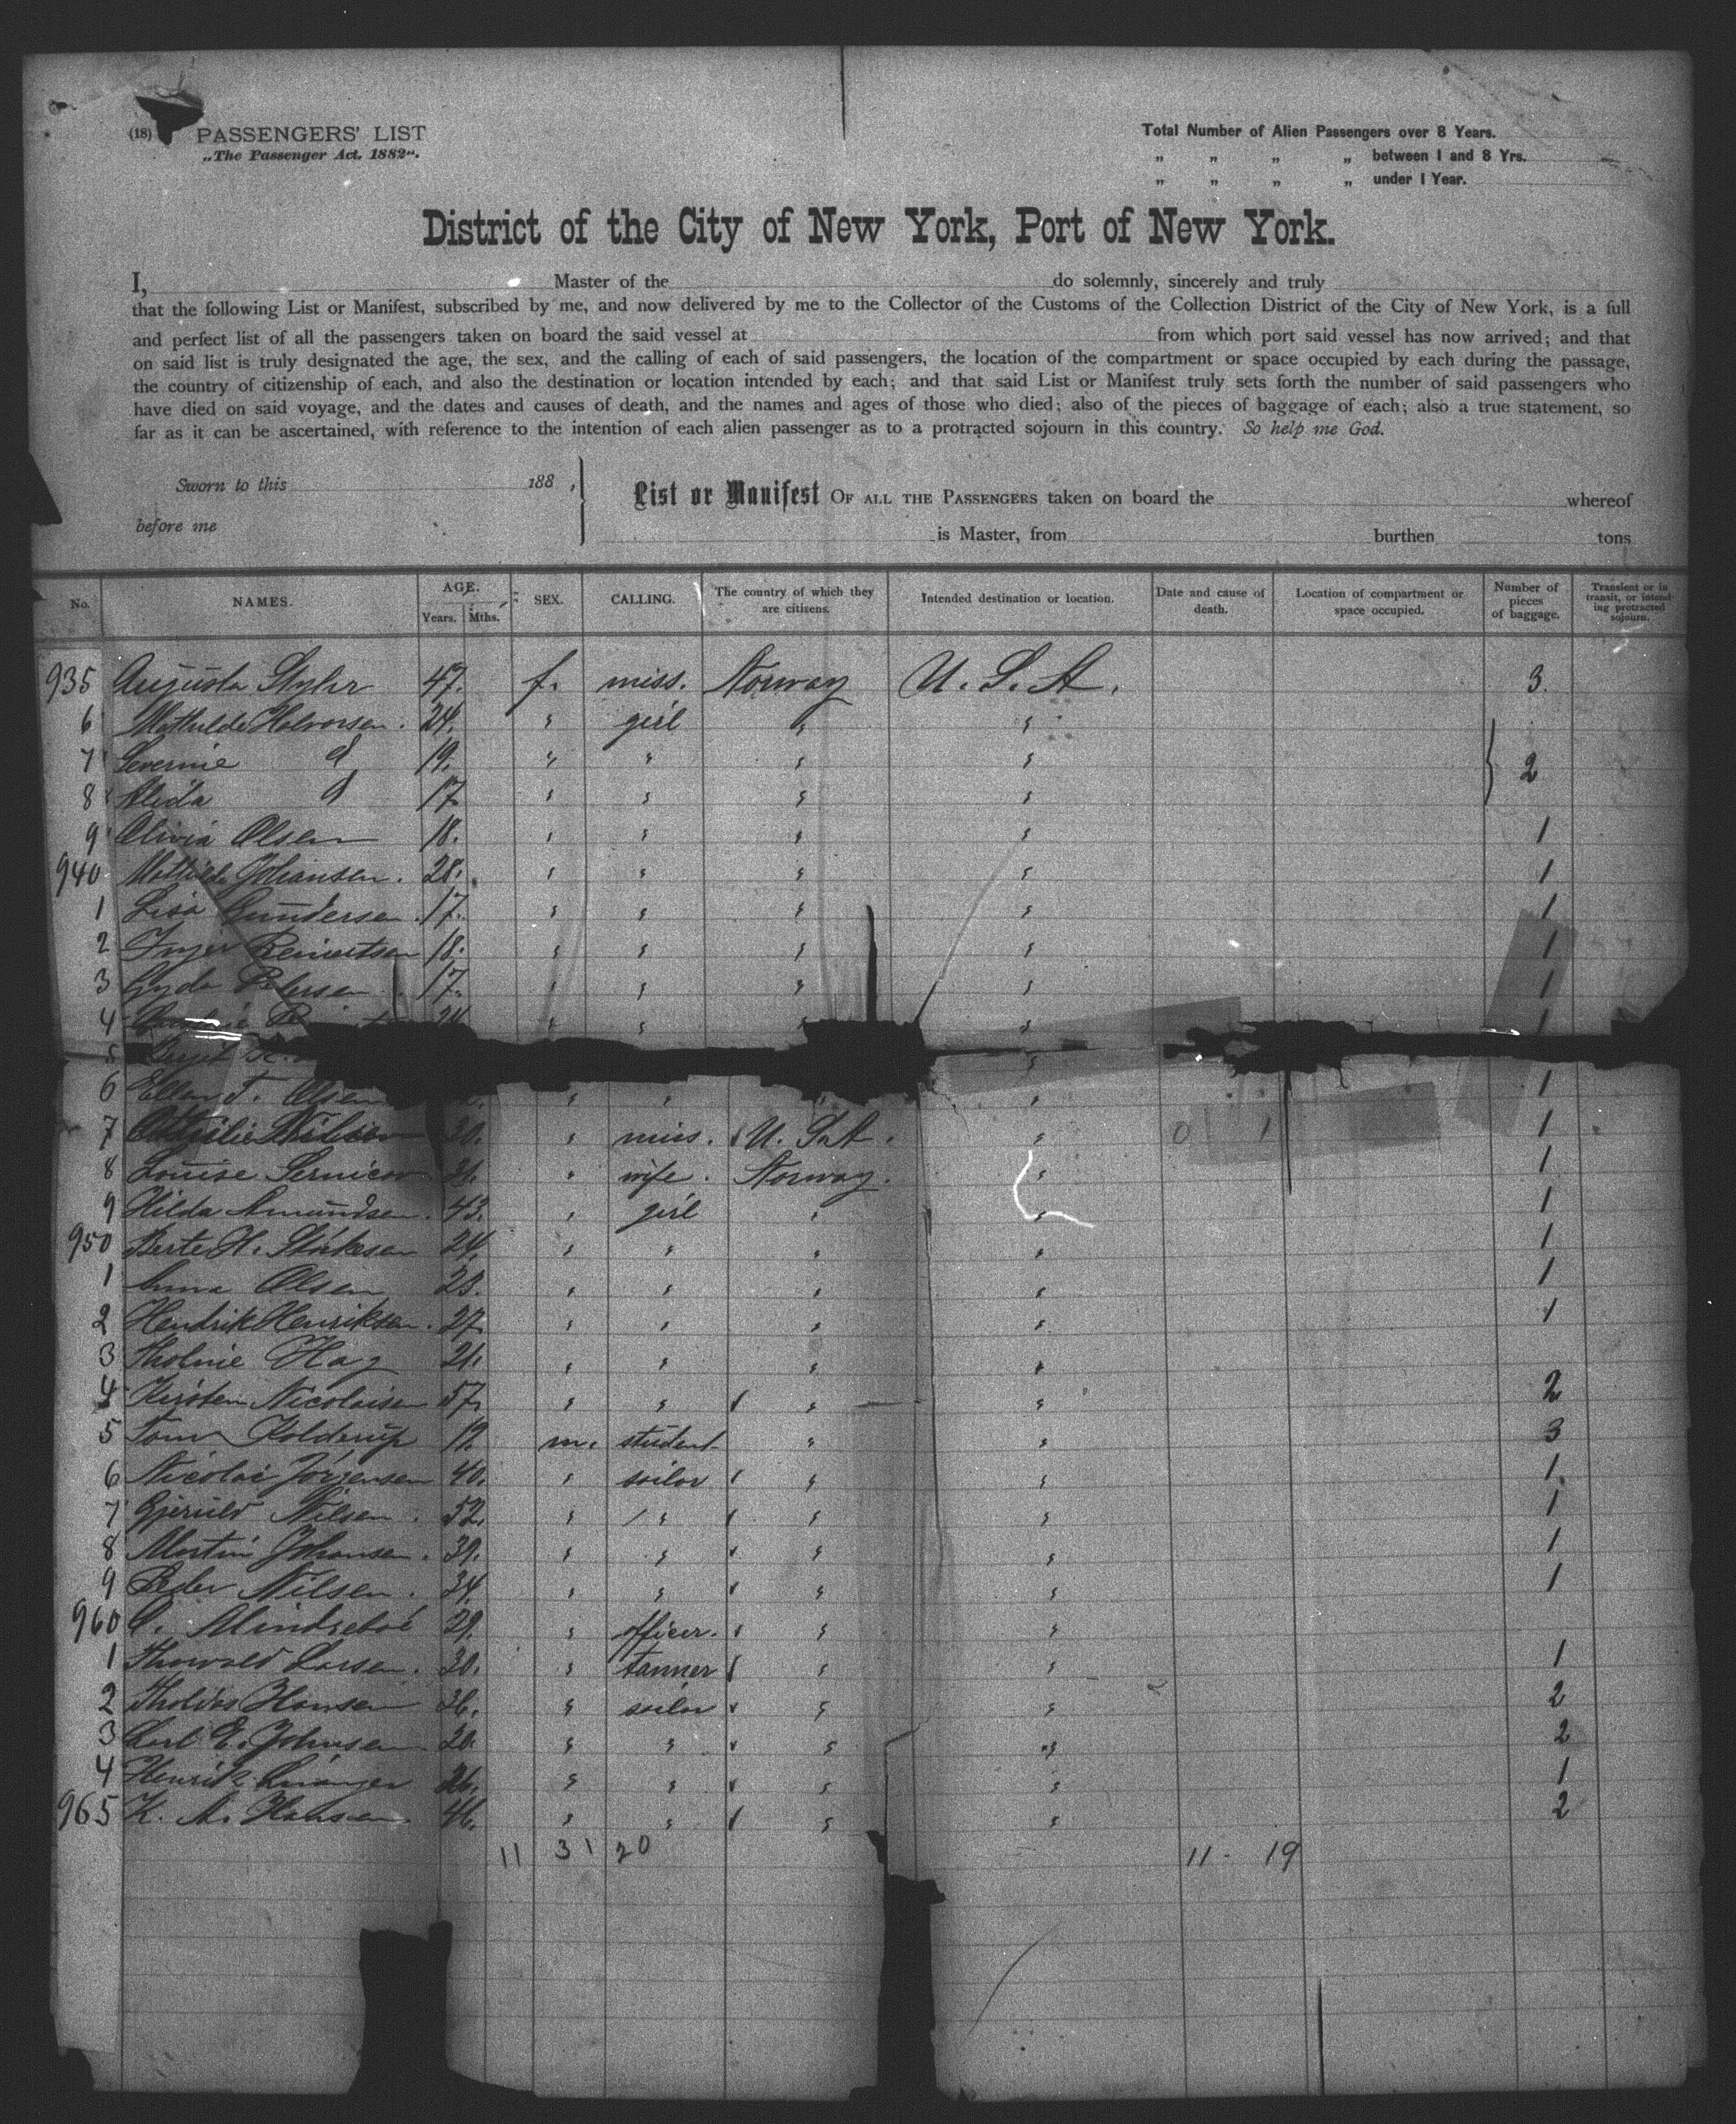 (18) PASSENGERS' LIST
„The Passenger Act, 1882".
Total Number of Alien Passengers over 8 Years.
„ „ „ „ between 1 and 8 Yrs.
„ „ „ „ under 1 Year.
District of the City of New York, Port of New York.
I, Master of the do solemnly, sincerely and truly
that the following List or Manifest, subscribed by me, and now delivered by me to the Collector of the Customs of the Collection District of the City of New York, is a full
and perfect list of all the passengers taken on board the said vessel at from which port said vessel has now arrived; and that
on said list is truly designated the age, the sex, and the calling of each of said passengers, the location of the compartment or space occupied by each during the passage,
the country of citizenship of each, and also the destination or location intended by each; and that said List or Manifest truly sets forth the number of said passengers who
have died on said voyage, and the dates and causes of death, and the names and ages of those who died; also of the pieces of baggage of each; also a true statement, so
far as it can be ascertained, with reference to the intention of each alien passenger as to a protracted sojourn in this country. So help me God.
Sworn to this 188 ,
before me
List or Manifest OF ALL THE PASSENGERS taken on board the whereof
is Master, from burthen tons
No. NAMES. AGE. Years. Mths. SEX. CALLING. The country of which they are citizens. Intended destination or location. Date and cause of death. Location of compartment or space occupied. Number of pieces of baggage. Transient or in transit, or intending protracted sojourn.
935 Augusta 47. f. miss. Norway U. S. A. 3.
6 Mathilde Halvorsen. 24. " girl " "
7 Severine d 19. " " " " 2
8 Alida d 17. " " " "
9 Olivia Olsen 18. " " " " 1
940 Mathilde Johansen. 28. " " " " 1
1 Lisa Gundersen. 17. " " " " 1
2 Inger Reinertsen 18. " " " " 1
3 Gyda Petersen 17. " " " " 1
4 " " " " 1
5 "
6 Ellen T. Olsen " " " " 1
7 Nilsen 30. " miss. U. S. A. " 0 1 1
8 Louise " wife. Norway. " 1
9 Hilda Amundsen. 43. " girl " " 1
950 Berte H. 24. " " " " 1
1 Anna Olsen 23. " " " " 1
2 Hendrik Henriksen. 27. " " " " 1
3 Tholine Hag 21. " " " "
4 Kirsten Nicolaisen 57. " " " " 2
5 Tom Kolderup 19. m. student " " 3
6 Nicolai Jörgensen 40. " sailor " " 1.
7 Gjeruld Nilsen. 52. " " " " 1
8 Martin Johansen. 39. " " " " 1
9 Peder Nilsen. 34. " " " " 1
960 O. 29. " officer. " "
1 Thorvald Larsen. 30. " tanner " " 1
2 Hansen 36. " sailor " " 2
3 Carl E. Johnsen. 20. " " " " 2
4 Henrik 26. " " " " 1
965 K. A. Hansen. 46. " " " " 2
11 31 20 11 - 19